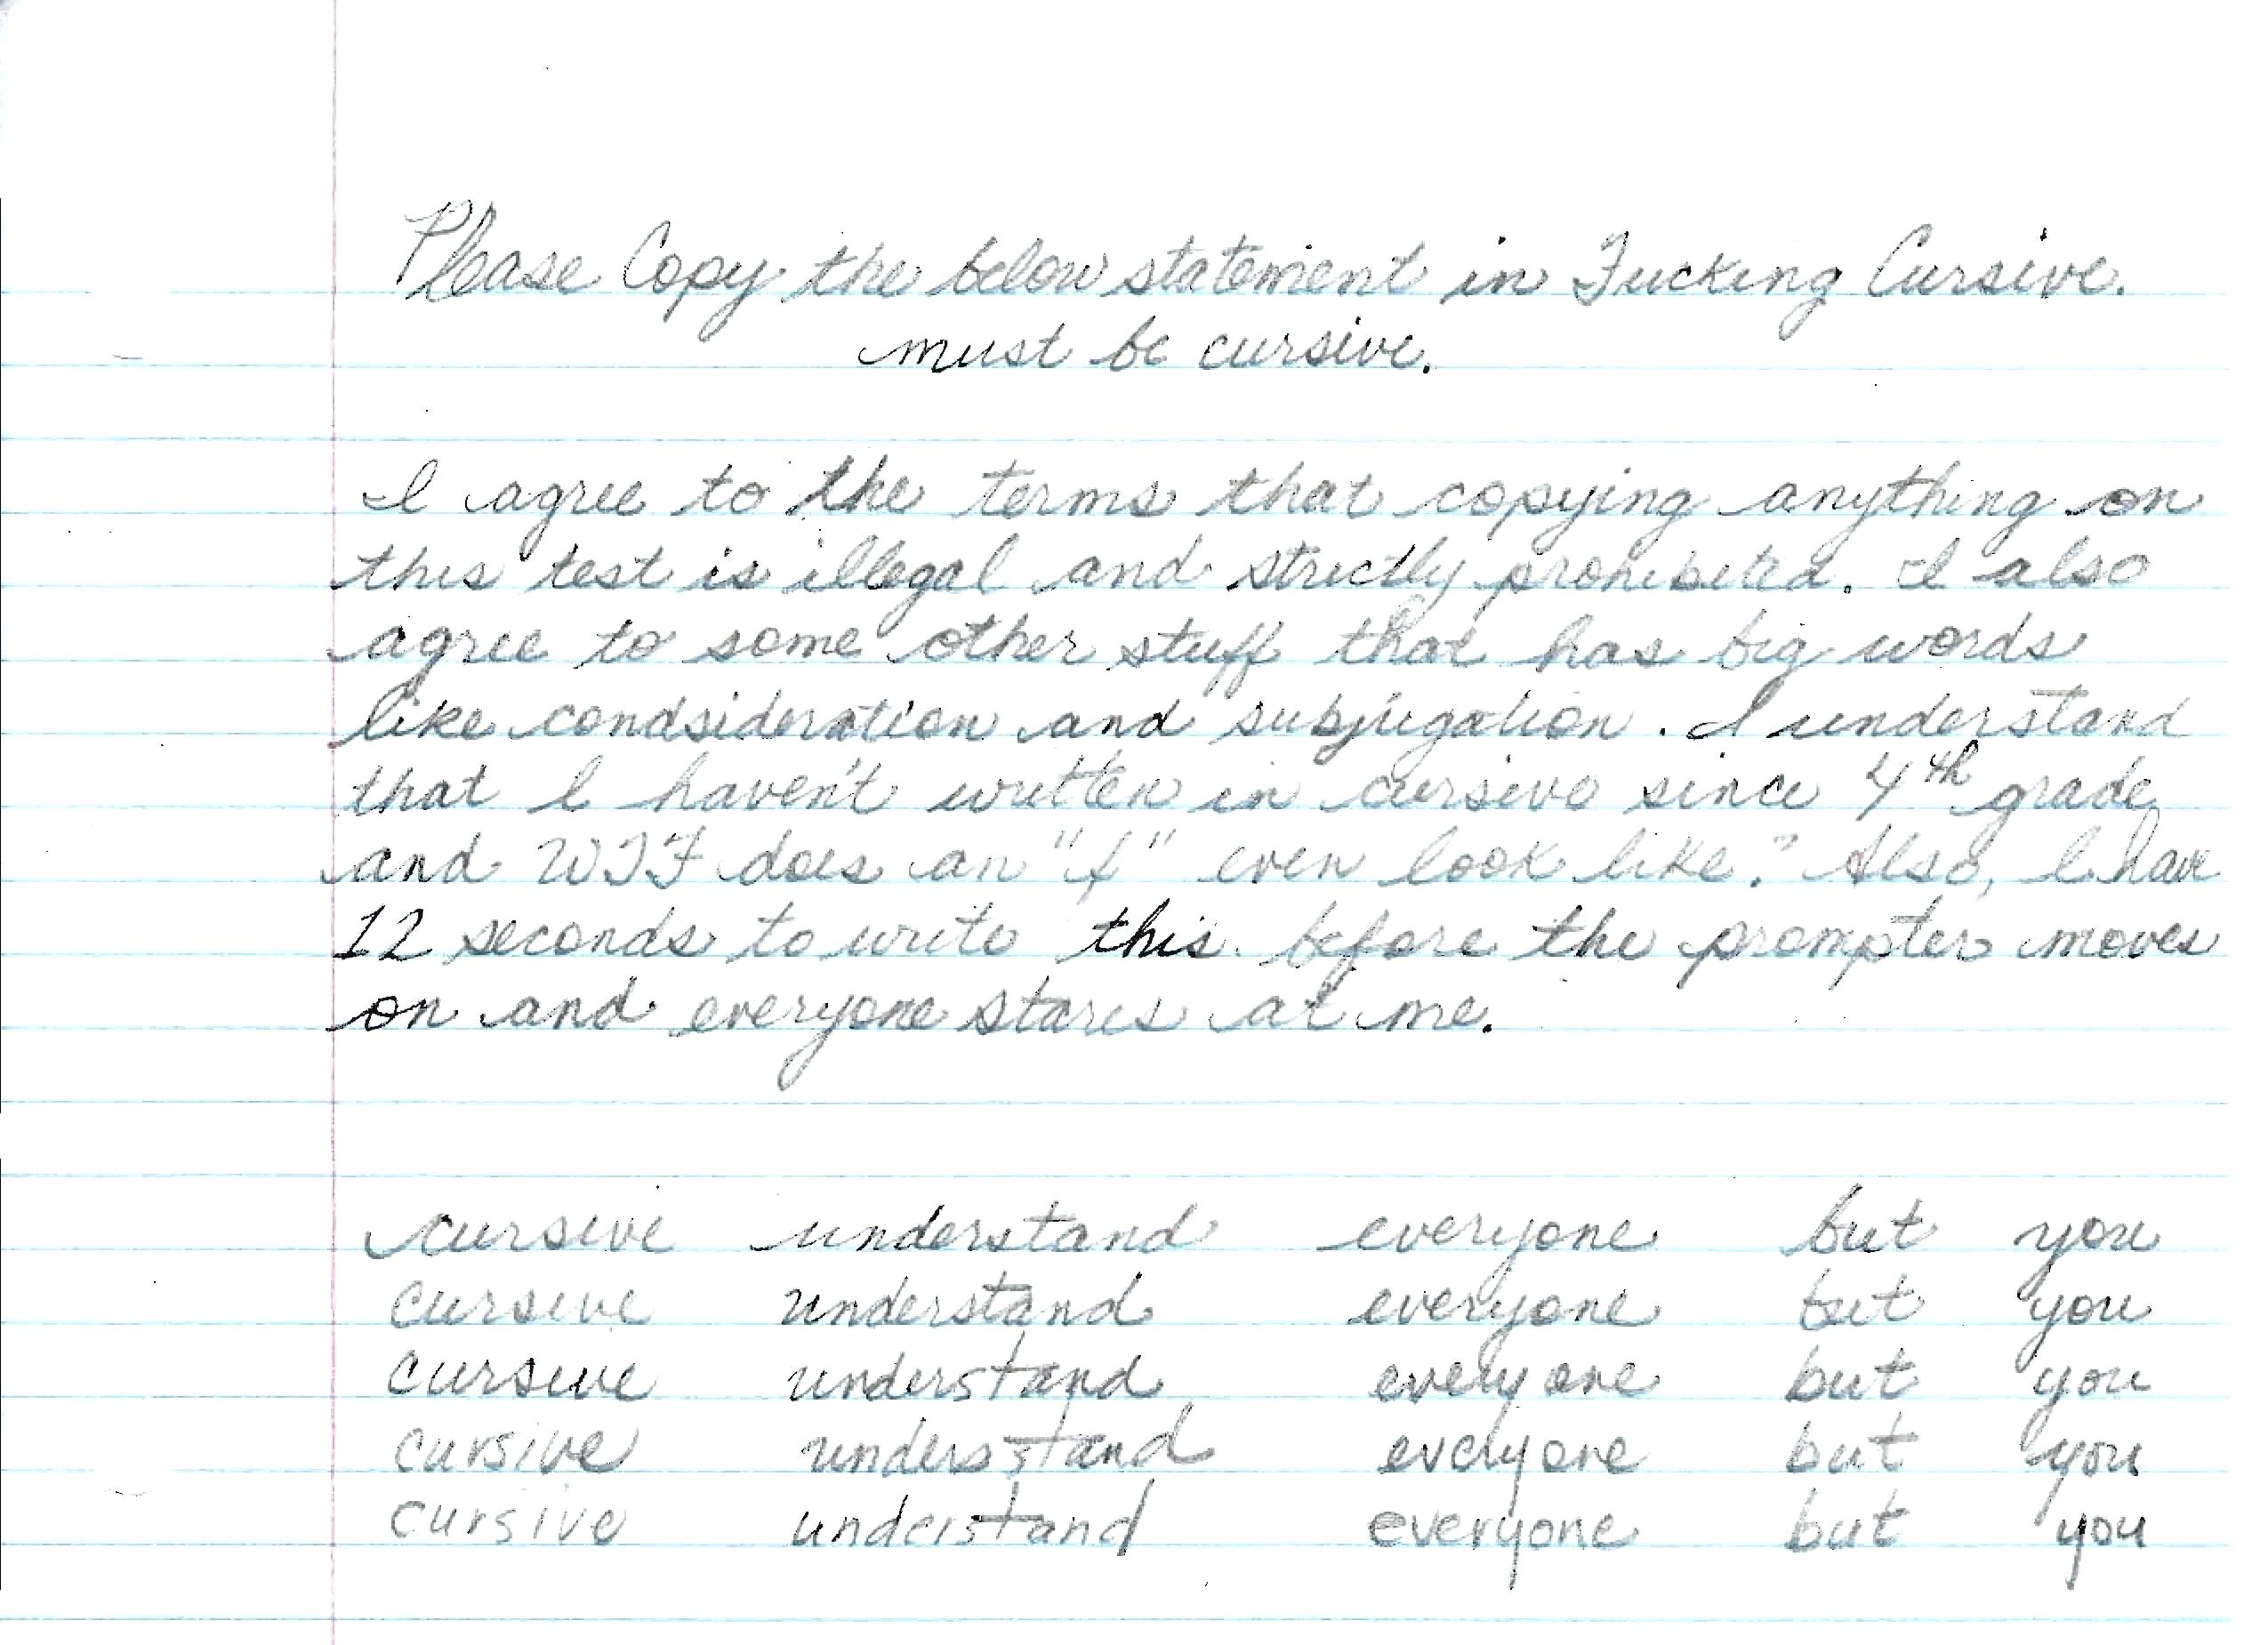 Please Copy the below statement in Fucking Cursive.
must be cursive.
I agree to the terms that copying anything on
this test is illegal and strictly prohibited. I also
agree to some other stuff that has big words
like condsideration and subjugation. I understand
that I haven't written in cursive since 4th grade
and WTF does an "f" even look like? Also, I have
12 seconds to write this before the prompter moves
on and everyone stares at me.
cursive understand everyone but you
cursive understand everyone but you
cursive understand everyone but you
cursive understand everyone but you
cursive understand everyone but you